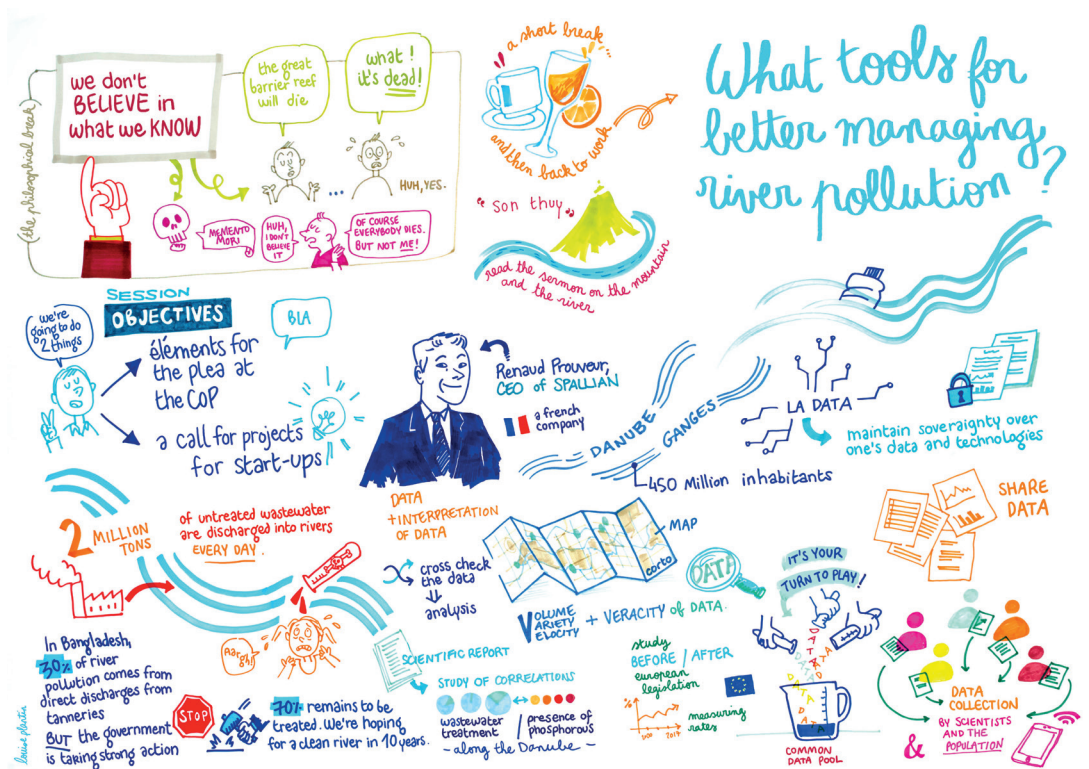 What tools for
better managing
river pollution?
(the philosophical break)
we don't
BELIEVE in
what we KNOW
the great
barrier reef
will die
what!
it's dead!
...
HUH, YES.
MEMENTO
MORI
HUH,
I DON'T
BELIEVE
IT
OF COURSE
EVERYBODY DIES.
BUT NOT ME!
a short break...
and then back to work
"son thuy"
read the sermon on the mountain
and the river
SESSION
OBJECTIVES
we're
going to do
2 things
BLA
éléments for
the plea at
the COP
a call for projects
for start-ups
Renaud Prouveur,
CEO of SPALLIAN
a french
company
DANUBE
GANGES
450 Million inhabitants
LA DATA
maintain soveraignty over
one's data and technologies
SHARE
DATA
2 MILLION
TONS
of untreated wastewater
are discharged into rivers
EVERY DAY.
Aargh!
In Bangladesh,
30% of river
pollution comes from
direct discharges from
tanneries
BUT the government
is taking strong action
STOP
70% remains to be
treated. We're hoping
for a clean river in 10 years.
DATA
+INTERPRETATION
OF DATA
cross check
the data
analysis
MAP
corto
DATA
VOLUME
VARIETY
VELOCITY
+ VERACITY of DATA.
SCIENTIFIC REPORT
STUDY OF CORRELATIONS
wastewater
treatment
/ presence of
phosphorous
- along the Danube -
study
BEFORE / AFTER
european
legislation
%
2017
measuring
rates
IT'S YOUR
TURN TO PLAY!
DATA
DATA
DATA
COMMON
DATA POOL
DATA
COLLECTION
BY SCIENTISTS
AND THE
& POPULATION
louise plantin